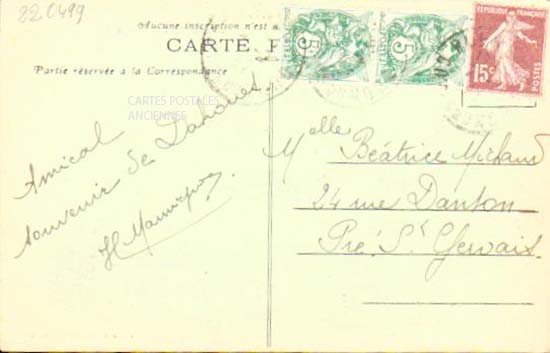 220499
Aucune inscription n'est a
CARTE
Partie réservée à la Correspondance
CARTES POSTALES
ANCIENNES
5c
5c
RÉPUBLIQUE FRANÇAISE
15c
POSTES
Amical
souvenir de Dahouet
Melle Béatrice Michaud
24 rue Danton
Pré St Gervais